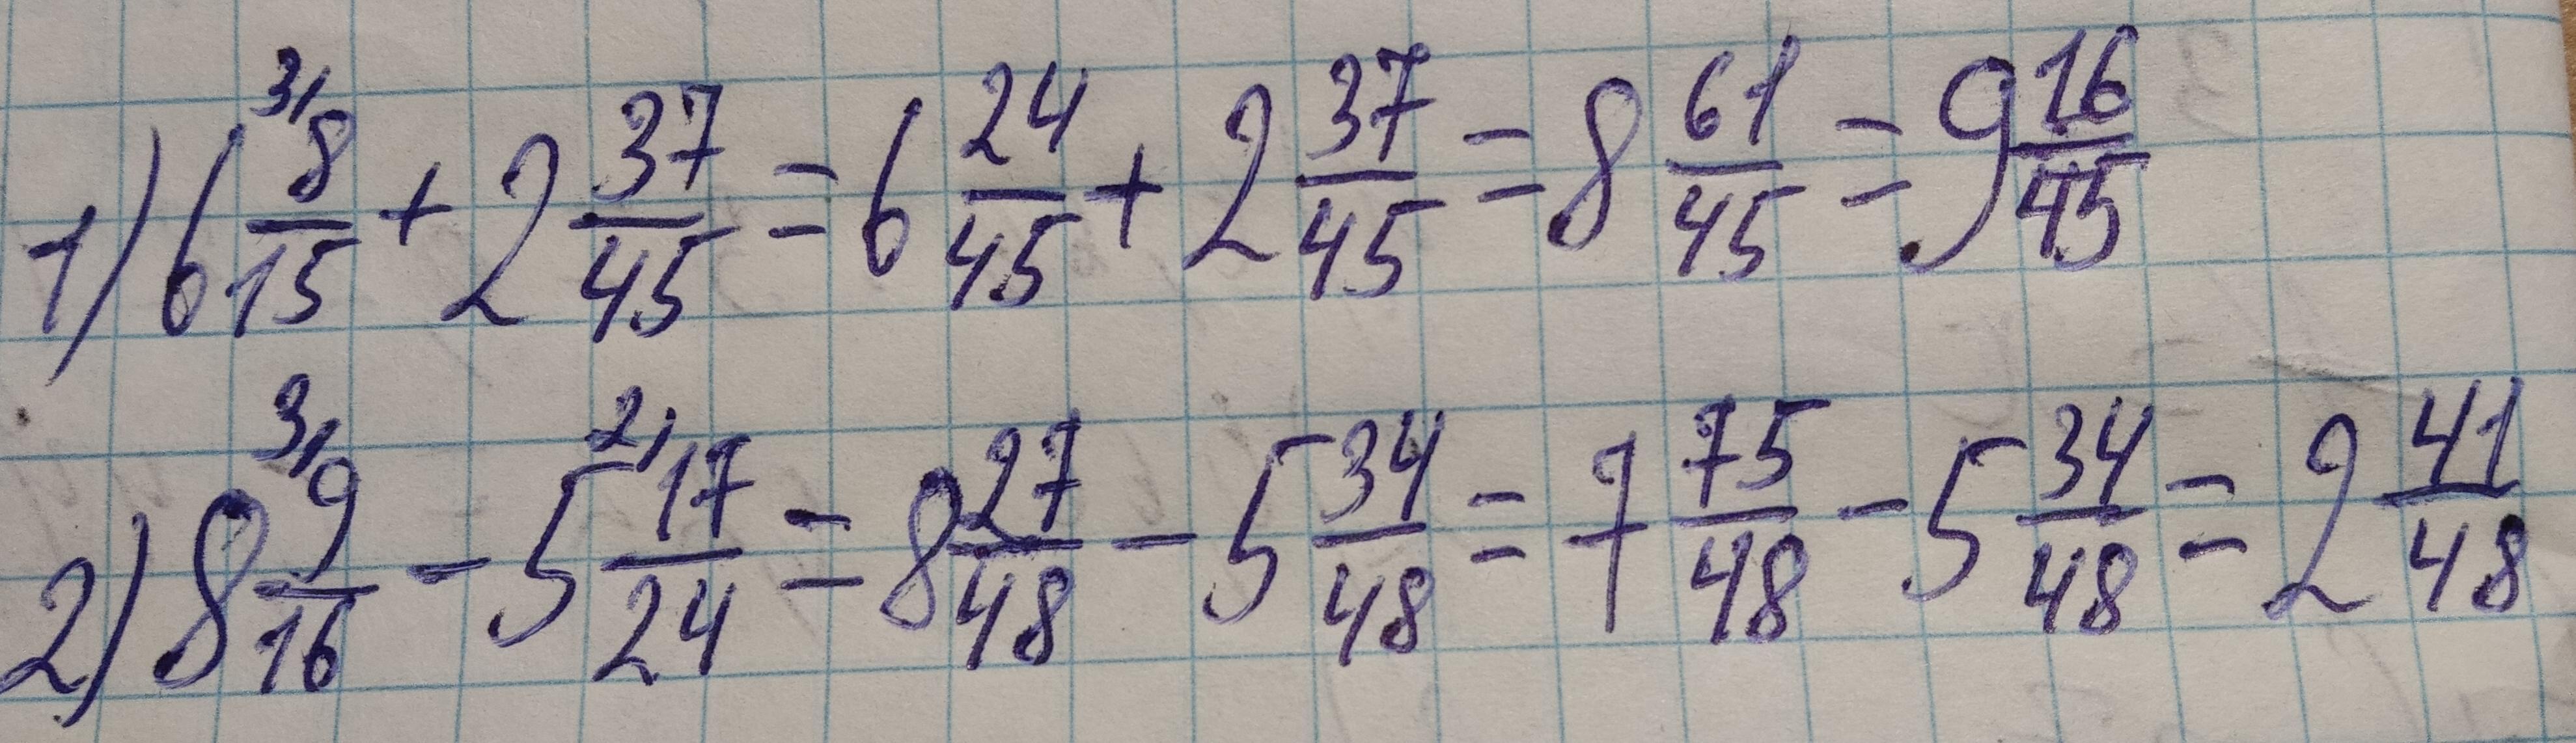 1) 6 3/ 8/15 + 2 37/45 = 6 24/45 + 2 37/45 = 8 61/45 = 9 16/45
2) 8 3/ 9/16 - 5 2/ 17/24 = 8 27/48 - 5 34/48 = 7 75/48 - 5 34/48 = 2 41/48